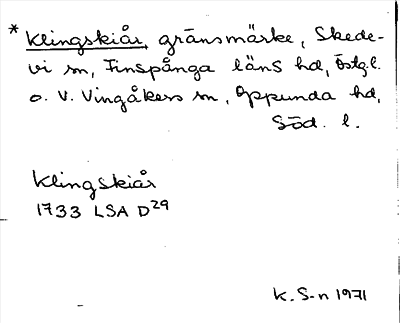 * Klingskiår, gränsmärke, Skede-
vi sn, Finspånga läns hd, Östg. l.
o. V. Vingåkers sn, Oppunda hd,
Söd. l.
Klingskiår
1733 LSA D29
K. S-n 1971